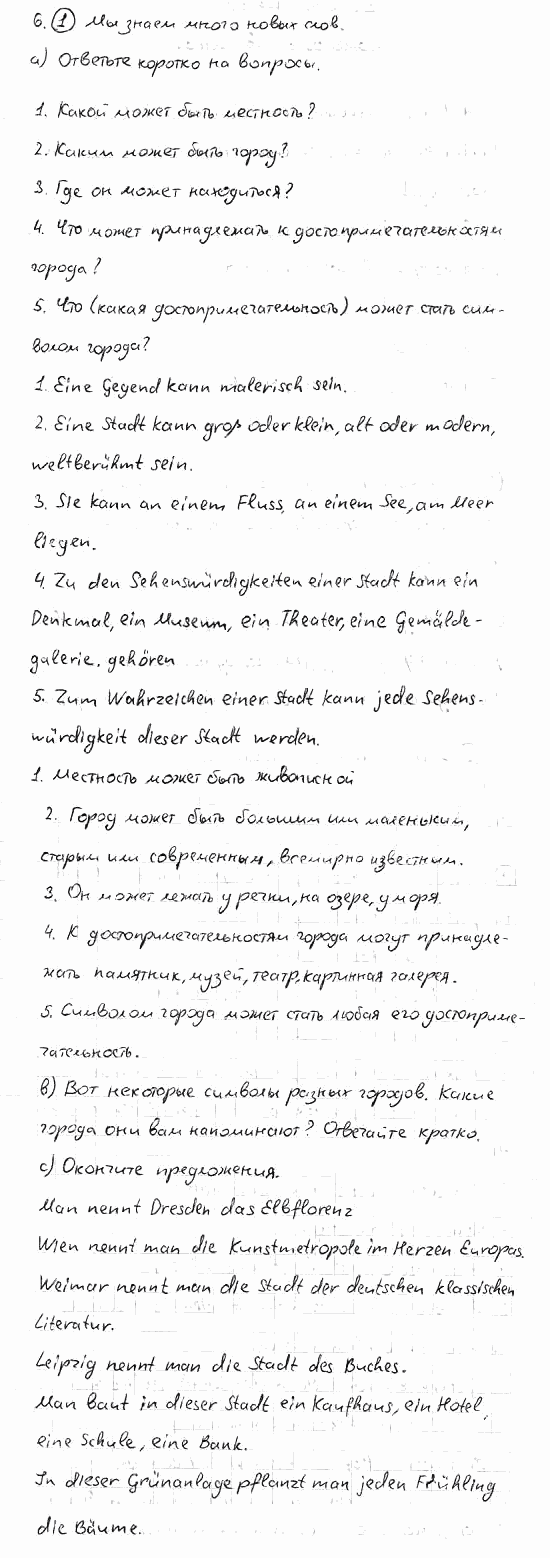 6. ① Мы знаем много новых слов.
а) Ответьте коротко на вопросы.
1. Какой может быть местность?
2. Каким может быть город?
3. Где он может находиться?
4. Что может принадлежать к достопримечательностям
города?
5. Что (какая достопримечательность) может стать сим-
волом города?
1. Eine Gegend kann malerisch sein.
2. Eine Stadt kann groß oder klein, alt oder modern,
weltberühmt sein.
3. Sie kann an einem Fluss, an einem See, am Meer
liegen.
4. Zu den Sehenswürdigkeiten einer Stadt kann ein
Denkmal, ein Museum, ein Theater, eine Gemälde-
galerie, gehören
5. Zum Wahrzeichen einer Stadt kann jede Sehens-
würdigkeit dieser Stadt werden.
1. Местность может быть живописной
2. Город может быть большим или маленьким,
старым или современным, всемирно известным.
3. Он может лежать у речки, на озере, у моря.
4. К достопримечательностям города могут принадле-
жать памятник, музей, театр, картинная галерея.
5. Символом города может стать любая его достоприме-
чательность.
в) Вот некоторые символы разных городов. Какие
города они вам напоминают? Отвечайте кратко.
с) Окончите предложения.
Man nennt Dresden das Elbflorenz
Wien nennt man die Kunstmetropole im Herzen Europas.
Weimar nennt man die Stadt der deutschen klassischen
Literatur.
Leipzig nennt man die Stadt des Buches.
Man baut in dieser Stadt ein Kaufhaus, ein Hotel,
eine Schule, eine Bank.
In dieser Grünanlage pflanzt man jeden Frühling
die Bäume.